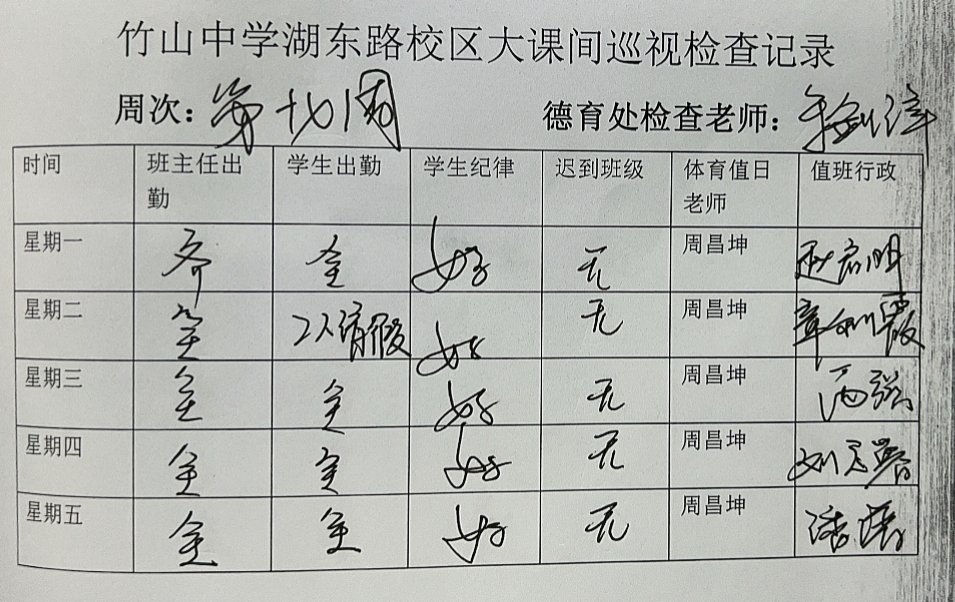 竹山中学湖东路校区大课间巡视检查记录
周次：第十八周 德育处检查老师：
时间 班主任出勤 学生出勤 学生纪律 迟到班级 体育值日老师 值班行政
星期一 齐 全 好 无 周昌坤
星期二 全 2人请假 好 无 周昌坤
星期三 全 全 好 无 周昌坤
星期四 全 全 好 无 周昌坤
星期五 全 全 好 无 周昌坤